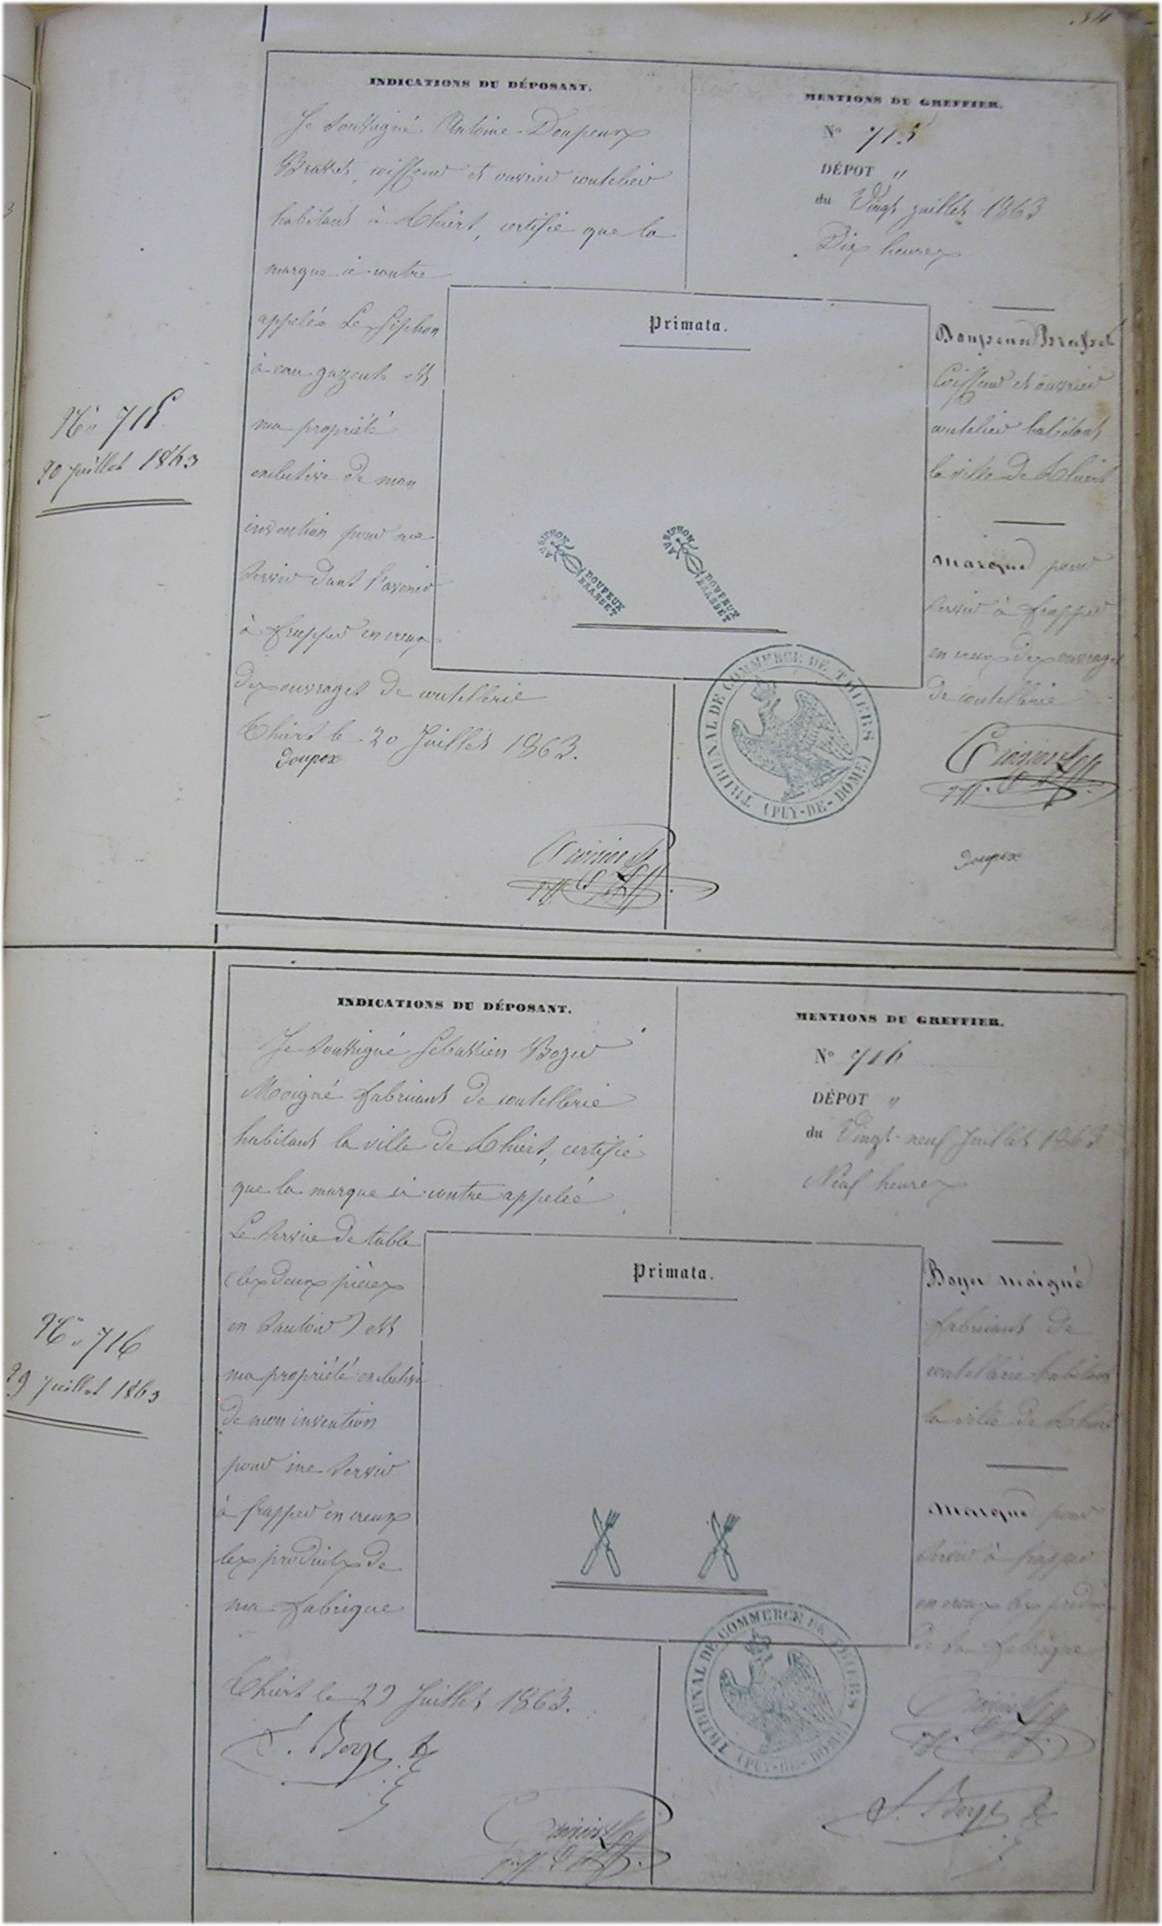 INDICATIONS DU DÉPOSANT.
Je soussigné Antoine Doupeux
Brasset, coiffeur et ouvrier coutelier
habitant à Thiers, certifie que la
marque ci contre
appelée Le Siphon
à eau gazeuse est
ma propriété
exclusive de mon
invention pour me
servir dans l'avenir
à frapper en creux
des ouvrages de coutellerie
Thiers le 20 Juillet 1863.
Doupex
MENTIONS DU GREFFIER.
N° 715
DÉPOT "
du Vingt juillet 1863
Dix heures
Primata.
AU SIPHON
DOUPEUX
BRASSET
AU SIPHON
DOUPEUX
BRASSET
TRIBUNAL DE COMMERCE DE THIERS
(PUY-DE-DOME)
Doupeux Brasset
Coiffeur et ouvrier
coutelier habitant
la ville de Thiers
Marque pour
servir à frapper
en creux des ouvrages
de coutellerie
Doupex
N° 715
20 juillet 1863
INDICATIONS DU DÉPOSANT.
Je soussigné Sébastien Boyer
Moigné fabricant de coutellerie
habitant la ville de Thiers, certifie
que la marque ci contre appelée
Le Service de table
(les deux pièces
en sautoir) est
ma propriété exclusive
de mon invention
pour me servir
à frapper en creux
les produits de
ma fabrique
Thiers le 29 Juillet 1863.
S. Boyer
MENTIONS DU GREFFIER.
N° 716
DÉPOT "
du Vingt-neuf Juillet 1863
Neuf heures
Primata.
TRIBUNAL DE COMMERCE DE THIERS
(PUY-DE-DOME)
Boyer Moigné
fabricant de
coutellerie habitant
la ville de Thiers
Marque pour
servir à frapper
en creux les produits
de sa fabrique
S. Boyer
N° 716
29 Juillet 1863